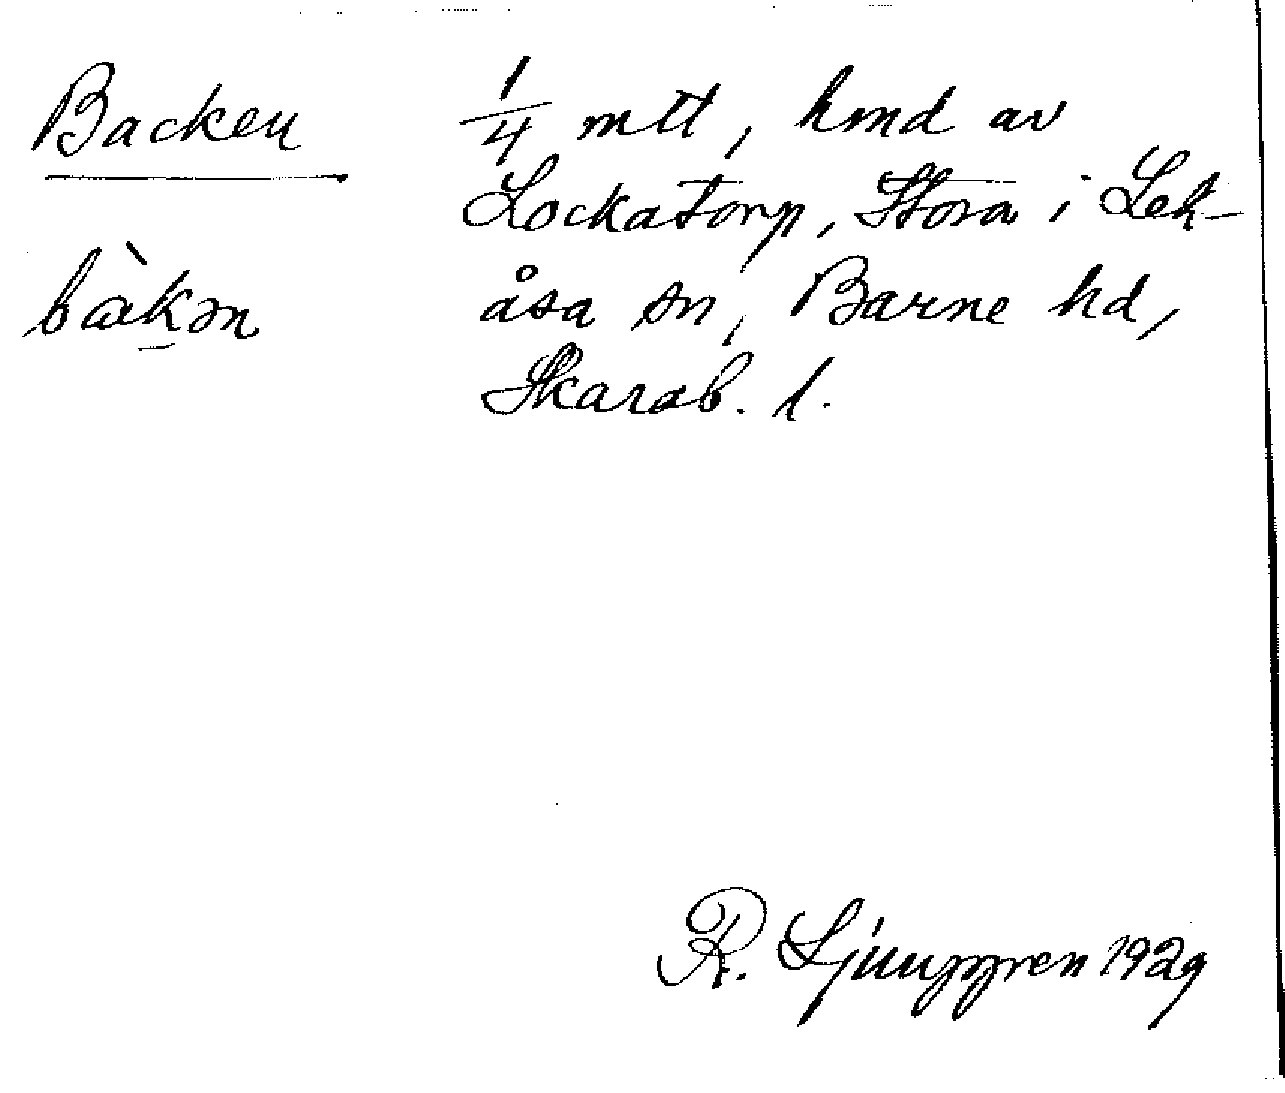 Backen
1/4 mtt, hmd av
Lockatorp, Stora i Lek-
åsa sn, Barne hd,
Skarab. l.
bàkən
R. Ljunggren 1929